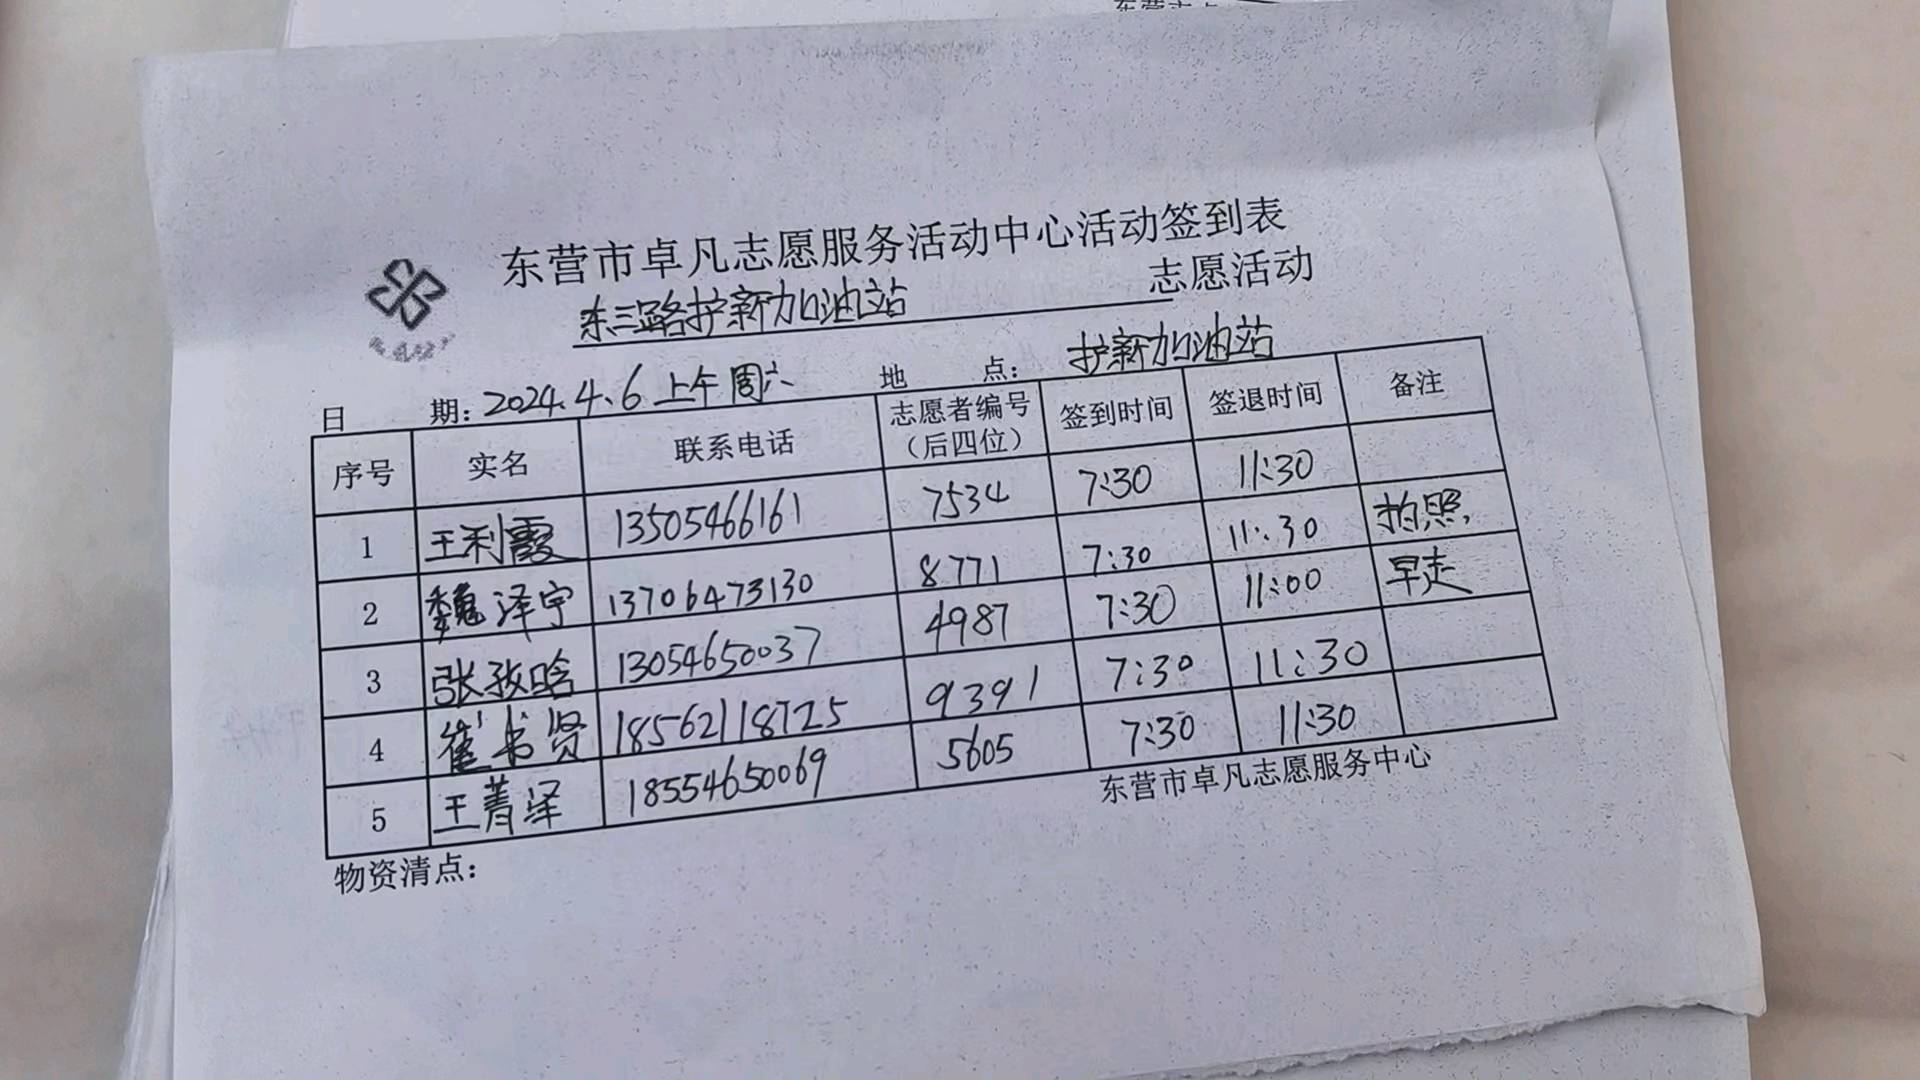 东营市卓凡志愿服务活动中心活动签到表
东三路护新加油站 志愿活动
日 期：2024.4.6 上午 周六 地 点：护新加油站
序号 实名 联系电话 志愿者编号（后四位） 签到时间 签退时间 备注
1 王利霞 13505466161 7534 7:30 11:30
2 魏泽宇 13706473130 8771 7:30 11:30 拍照,
3 张孜晗 13054650037 4987 7:30 11:00 早走
4 崔书贤 18562118725 9391 7:30 11:30
5 王菁泽 18554650069 5605 7:30 11:30
东营市卓凡志愿服务中心
物资清点：